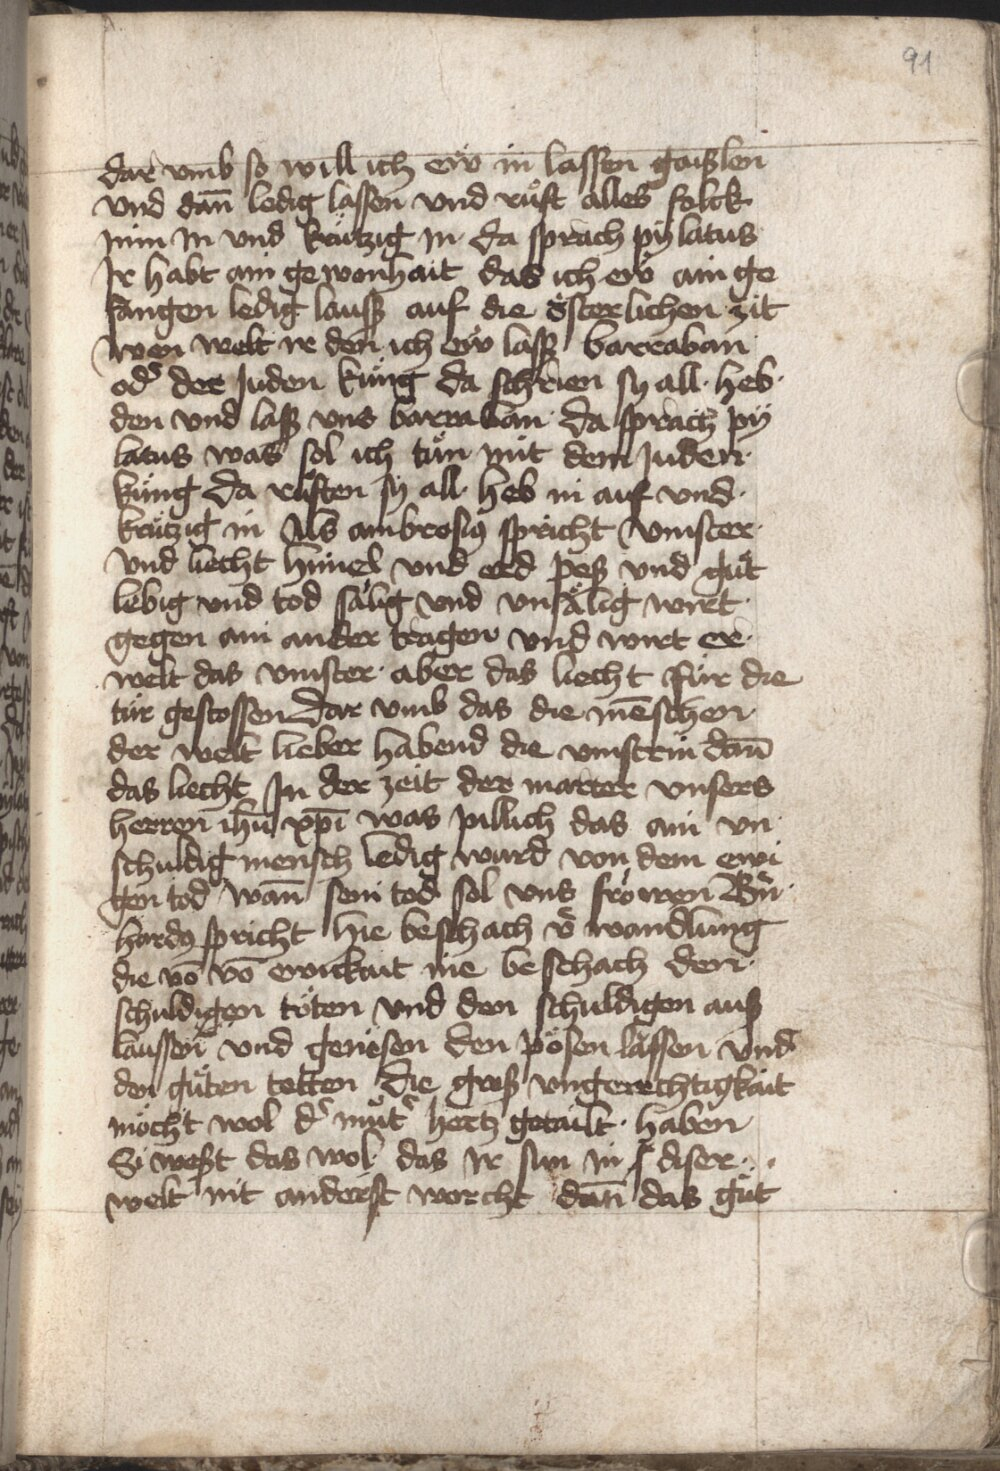 91
dar vmb so will ich eẅ in lassen gaißlen
vnd dan̄ ledig lassen vnd růft alles folck
nim in vnd krützig in · da sprach pÿlatus
Ir habt ain gewonhait das ich eẅ ain ge
fangen ledig lauß auf die österlichen zit
wen welt ir den ich eẅ laß barraban
od᷑ der Juden küng da schrien sÿ all · heb ·
den vnd laß vns barraban · da sprach pÿ
latus was sol ich tůn mit dem Juden ·
küng da růften sÿ all · heb in auf vnd ·
krützig in Als ambrosiꝰ spricht vinster ·
vnd liecht himel vnd erd peß vnd gůt
lebig vnd tod sälig vnd vnsälig wirt ·
gegen ain ander tragen vnd wirt er ·
welt das vinster · aber das liecht für die
tür gestossen Dar vmb das die mēschen ·
der welt lieber habend die vinstrin dan̄
das liecht In der zeit der marter vnsers
herren ih̄u xp̄i was pillich das ain vn
schuldig mensch ledig ward von dem ewi
gen tod wan̄ sein tod sol vns fröwen B᷑n
hardꝰ spricht hie beschach v᷑ wandlung
die vō vō ewickait nie beschach den ·
schuldigen töten vnd den schuldigen auß
laussen vnd genesen den pösen lassen vnd
den gůten tetten Die groß vngerechtigkait
möcht wol d᷑ můt᷑ hertz getailt · haben
Si weßt das wol das ir sun in diser · ·
welt nit anderst worcht dan̄ das gůt